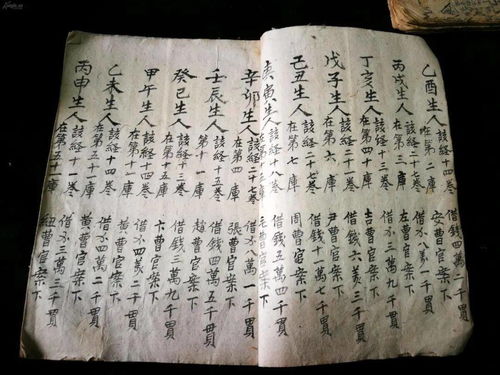 乙酉生人該経十四卷 借錢四萬二千貫
在第二庫 安曹官案下
丙戌生人該経二十七卷 借八萬一千貫
在第三庫 左曹官案下
丁亥生人該経十三卷 借三萬九千貫
在第四十庫 吉曹官案下
戊子生人該経二十一卷 借錢六萬三千貫
在第六庫 尹曹官案下
己丑生人該経二十七卷 借錢十一萬七千貫
在第七庫 周曹官案下
庚寅生人該経十八卷 借錢五萬四千貫
在第庫 毛曹官案下
辛卯生人該経二十七卷 借萬一千貫
在第四庫 張曹官案下
壬辰生人該経十五卷 借錢四萬五千貫
在第十一庫 趙曹官案下
癸巳生人該経十三卷 借錢三萬九千貫
在第十一庫 卞曹官案下
甲午生人該経十四卷 借四萬二千貫
在第十一庫 黃曹官案下
乙未生人該経十四卷 借四萬二千貫
在第五十一庫 黃曹官案下
丙申生人該経十一卷 借三萬三千貫
在第五十一庫 紐曹官案下